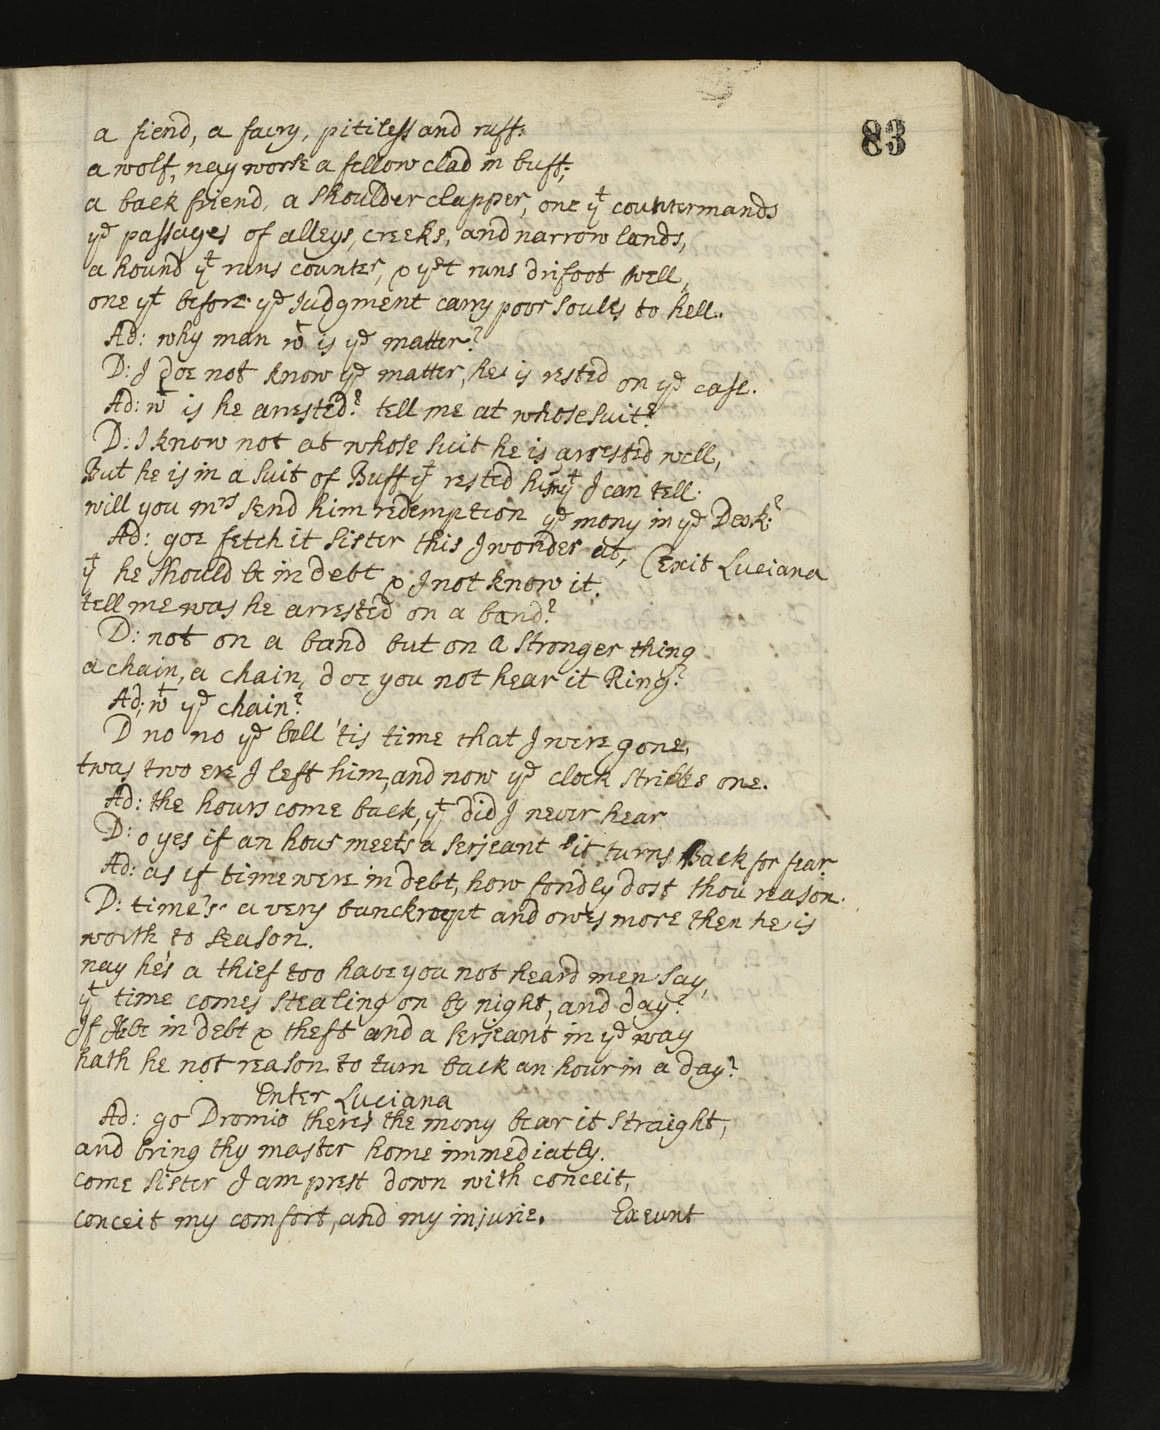 83
a fiend, a fairy, pitiless and ruff:
a wolf, nay worse a fellow clad in buff;
a back friend, a shoulder clapper, one yt countermands
ye passages of alleys, creeks, and narrow lands,
a hound yt runs counter, & yet runs drifoot well,
one yt before ye Judgment carry poor soules to hell.
Ad: why man wt is ye matter?
D: I doe not know ye matter, he is rested on ye case.
Ad: wt is he arrested? tell me at whose suit?
D: I know not at whose suit he is arrested well,
But he is in a suit of Buff yt rested him yt I can tell.
will you mrs send him redemption ye mony in ye Desk?
Ad: goe fetch it sister this I wonder at, (Exit Luciana
yt he should be in debt & I not know it.
tell me was he arrested on a band?
D: not on a band but on a stronger thing
a chain, a chain, doe you not hear it Ring?
Ad: wt ye chain?
D no no ye bell 'tis time that I were gone,
twas two ere I left him, and now ye clock strikes one.
Ad: the hours come back, yt did I never hear
D: o yes if an hour meets a serjeant it turns back for fear.
Ad: as if time were in debt, how fondly dost thou reason.
D: time's a very banckroupt and owes more then he is
worth to season.
nay he's a thief too have you not heard men say,
yt time comes stealing on by night, and day?
If be in debt & theft and a serjeant in ye way
hath he not reason to turn back an hour in a day?
Enter Luciana
Ad: go Dromio there's the mony bear it straight,
and bring thy master home immediatly.
come sister I am prest down with conceit,
conceit my comfort, and my injurie. Exeunt